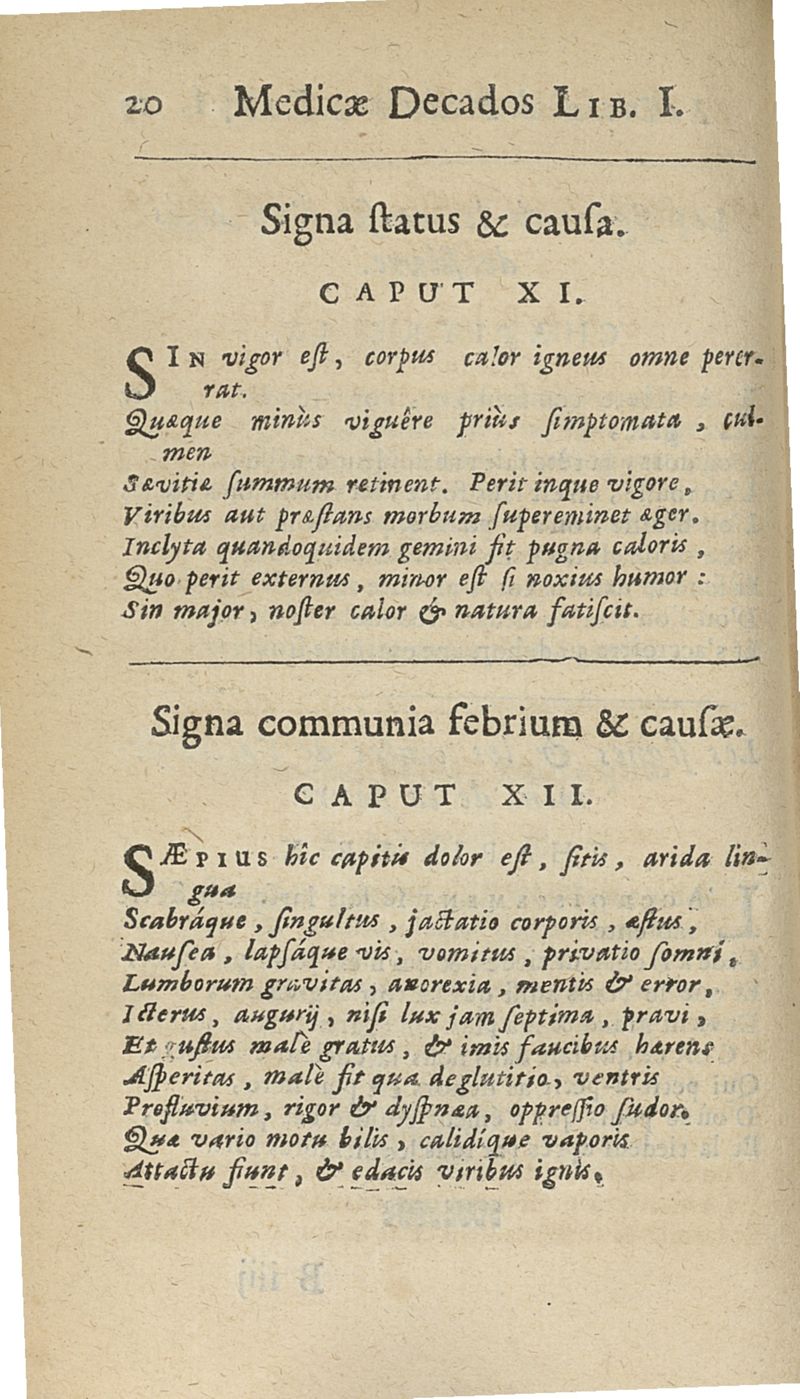 20 Medicæ Decados LIB. I.
Signa ſtatus & cauſa.
CAPUT XI.
SIN vigor eſt, corpus calor igneus omne perer-
rat.
Quæque minùs viguêre priùs ſimptomata, cul-
men
Sævitiæ ſummum retinent. Perit inque vigore,
Viribus aut præſtans morbum ſupereminet æger.
Inclyta quandoquidem gemini fit pugna caloris,
Quo perit externus, minor eſt ſi noxius humor:
Sin major, noſter calor & natura fatiſcit.
Signa communia febrium & cauſæ.
CAPUT XII.
SÆPIUS hîc capitis dolor eſt, ſitis, arida lin-
gua
Scabráque, ſingultus, jactatio corporis, æſtus,
Nauſea, lapſáque vis, vomitus, privatio ſomni,
Lumborum gravitas, anorexia, mentis & error,
Icterus, augurij, niſi lux jam ſeptima, pravi,
Et guſtus malè gratus, & imis faucibus hærens
Aſperitas, malè fit qua deglutitio, ventris
Profluvium, rigor & dyſpnæa, oppreſſio ſudor.
Quæ vario motu bilis, calidíque vaporis
Attactu fiunt, & edacis viribus ignis.